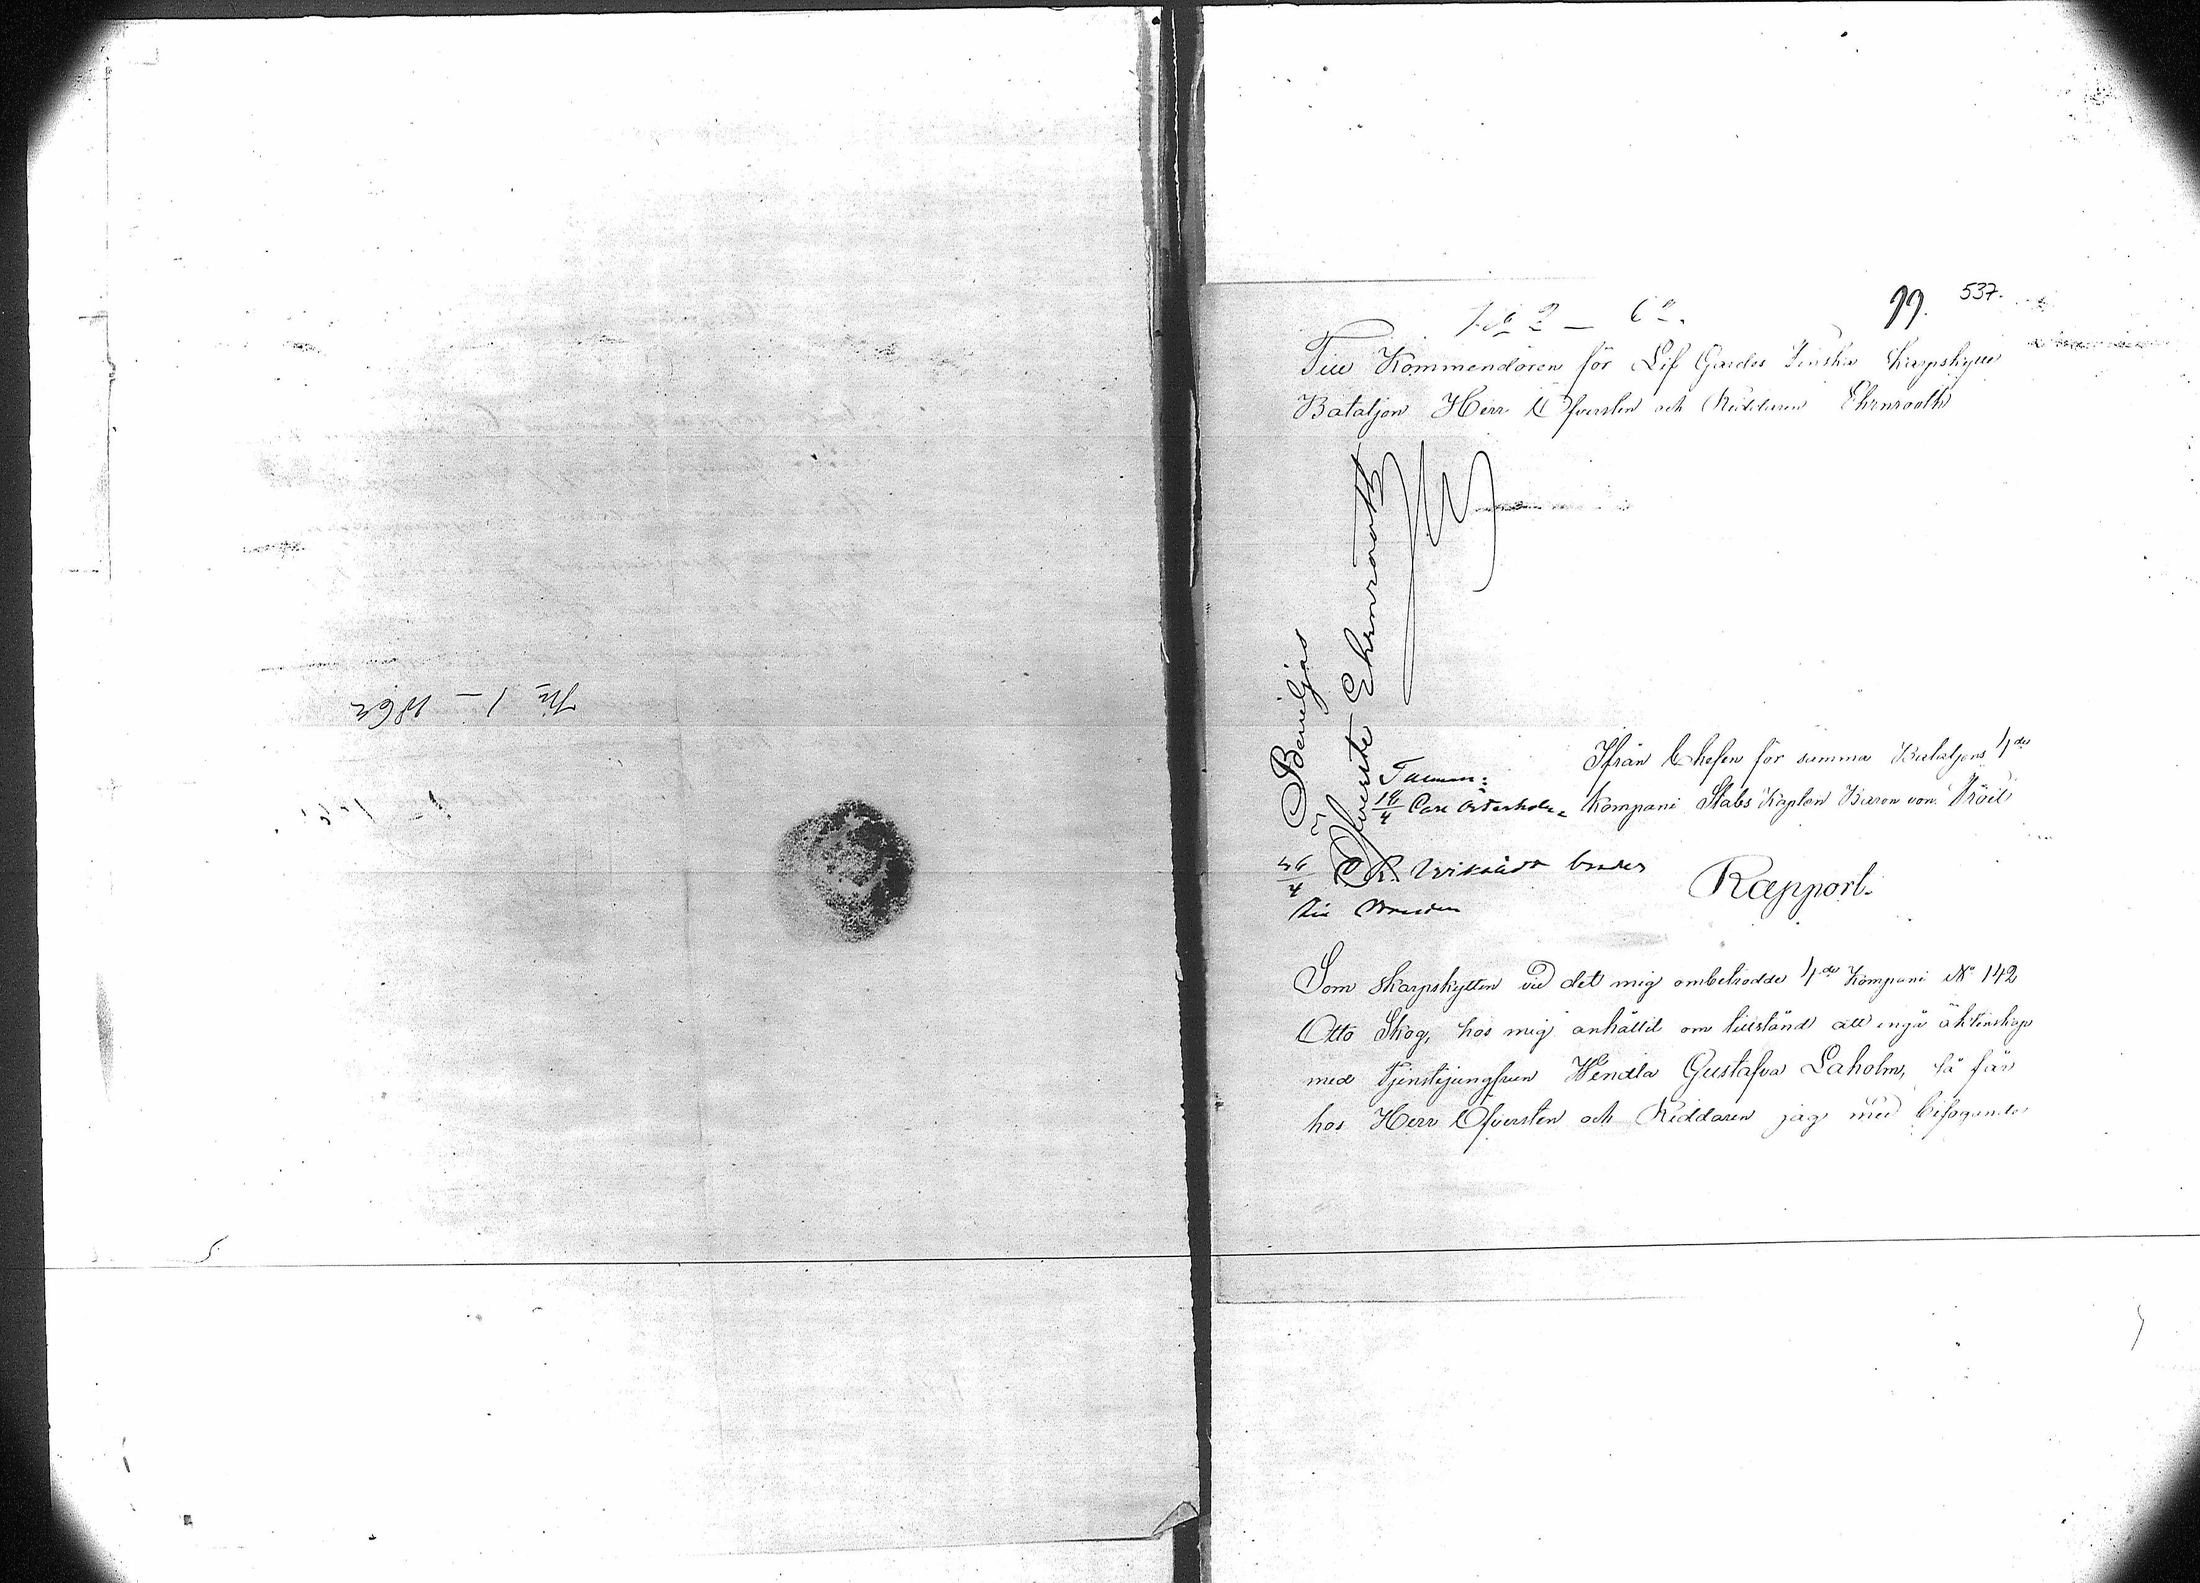 No 1 – 1862
No 2 – 62.
99. 537.
Till Kommendören för Lif Gardes Finska Skarpskytte
Bataljon Herr Öfversten och Riddaren Ehrnrooth
Beviljas
Öfverste Ehrnrooth
Ifrån Chefen för samma Bataljons 4de
Kompani Stabs Kapten Baron von Troil
18/4 Carl
26/4
Rapport.
Som skarpskytten vid det mig ombetrodde 4de Kompani No 142
Otto Skog, hos mig anhållit om tillstånd att ingå äktenskap
med Tjenstejungfrun Wendla Gustafva Laholm, så får
hos Herr Öfversten och Riddaren jag med bifogande